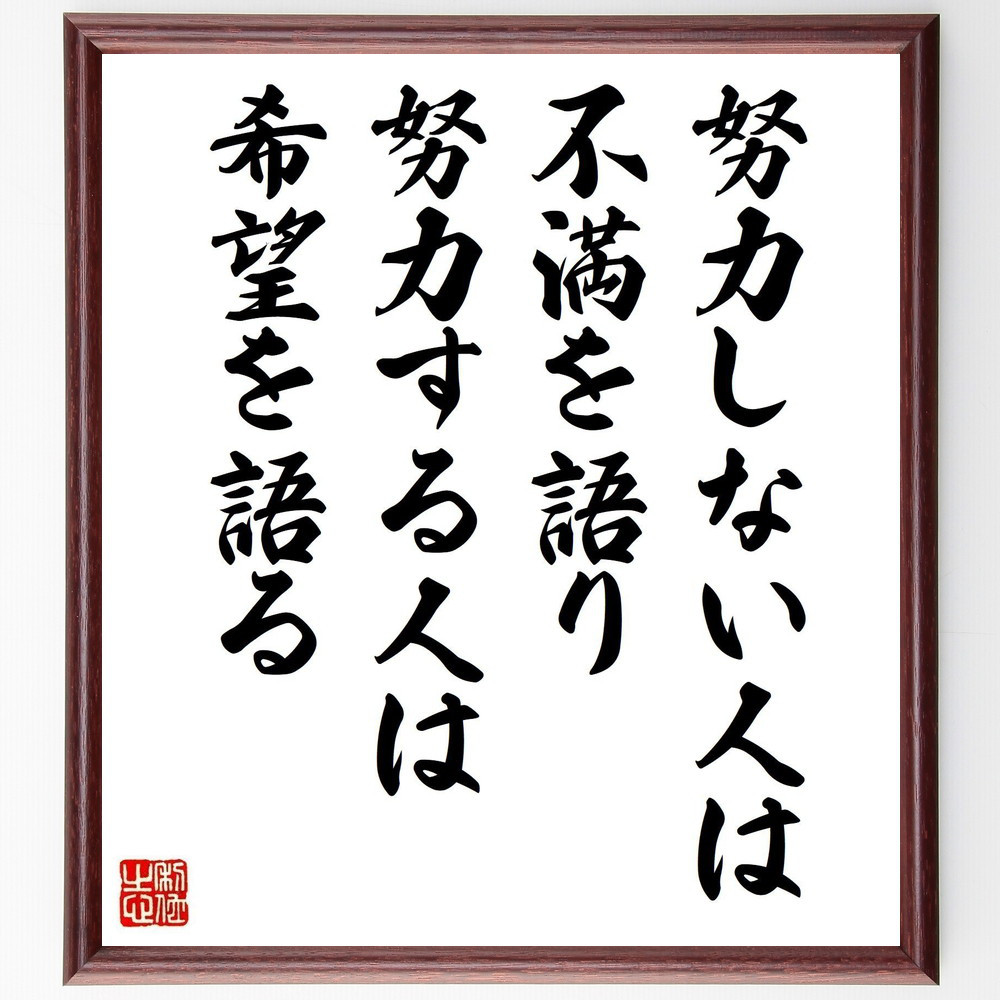 努力しない人は
不満を語り
努力する人は
希望を語る